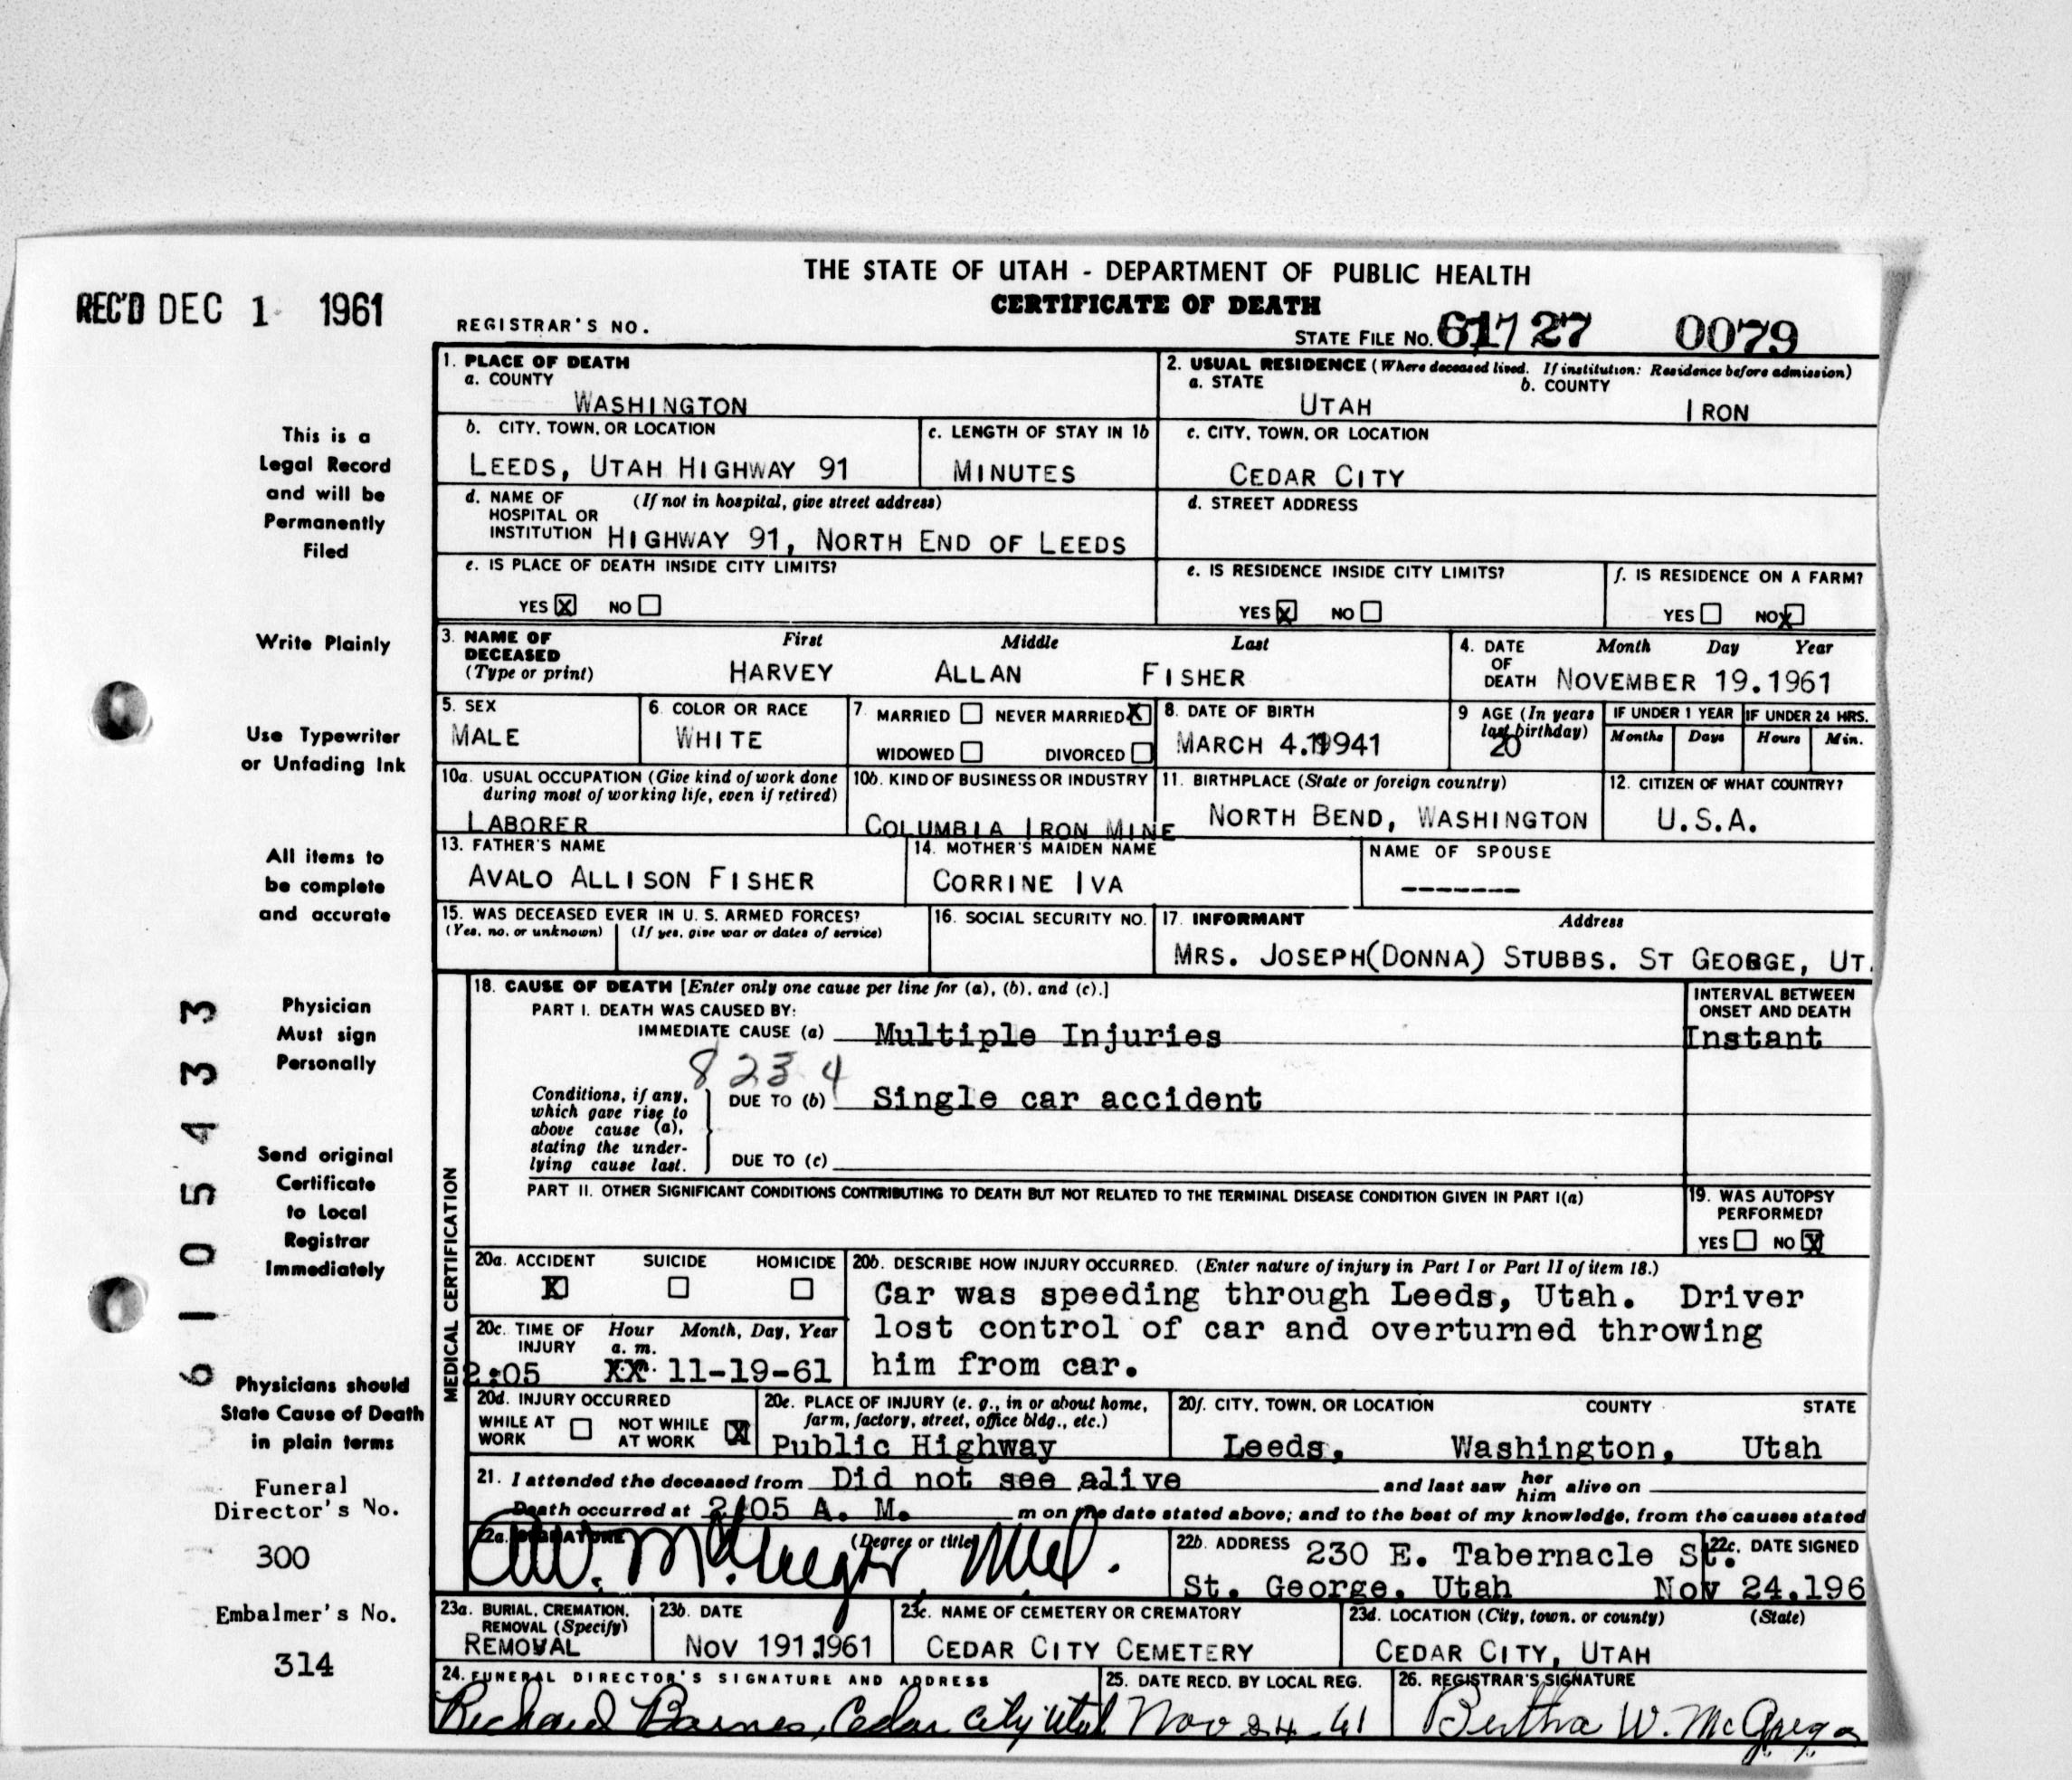 THE STATE OF UTAH - DEPARTMENT OF PUBLIC HEALTH
CERTIFICATE OF DEATH
REC'D DEC 1 1961
REGISTRAR'S NO.
STATE FILE NO. 61 27 0079
1. PLACE OF DEATH
a. COUNTY
WASHINGTON
2. USUAL RESIDENCE (Where deceased lived. If institution: Residence before admission)
a. STATE b. COUNTY
UTAH IRON
b. CITY, TOWN, OR LOCATION
LEEDS, UTAH HIGHWAY 91
c. LENGTH OF STAY IN 1b
MINUTES
c. CITY, TOWN, OR LOCATION
CEDAR CITY
d. NAME OF (If not in hospital, give street address)
HOSPITAL OR
INSTITUTION HIGHWAY 91, NORTH END OF LEEDS
d. STREET ADDRESS
e. IS PLACE OF DEATH INSIDE CITY LIMITS?
YES X NO
e. IS RESIDENCE INSIDE CITY LIMITS?
YES X NO
f. IS RESIDENCE ON A FARM?
YES NO X
3. NAME OF DECEASED
(Type or print)
First Middle Last
HARVEY ALLAN FISHER
4. DATE OF DEATH
Month Day Year
NOVEMBER 19.1961
5. SEX
MALE
6. COLOR OR RACE
WHITE
7. MARRIED NEVER MARRIED X
WIDOWED DIVORCED
8. DATE OF BIRTH
MARCH 4.1941
9 AGE (In years
last birthday)
20
IF UNDER 1 YEAR
Months Days
IF UNDER 24 HRS.
Hours Min.
10a. USUAL OCCUPATION (Give kind of work done
during most of working life, even if retired)
LABORER
10b. KIND OF BUSINESS OR INDUSTRY
COLUMBIA IRON MINE
11. BIRTHPLACE (State or foreign country)
NORTH BEND, WASHINGTON
12. CITIZEN OF WHAT COUNTRY?
U.S.A.
13. FATHER'S NAME
AVALO ALLISON FISHER
14. MOTHER'S MAIDEN NAME
CORRINE IVA
NAME OF SPOUSE
-------
15. WAS DECEASED EVER IN U. S. ARMED FORCES?
(Yes, no, or unknown) (If yes, give war or dates of service)
16. SOCIAL SECURITY NO.
17. INFORMANT Address
MRS. JOSEPH(DONNA) STUBBS. ST GEORGE, UT.
MEDICAL CERTIFICATION
18. CAUSE OF DEATH [Enter only one cause per line for (a), (b), and (c).]
PART I. DEATH WAS CAUSED BY:
IMMEDIATE CAUSE (a) Multiple Injuries
INTERVAL BETWEEN
ONSET AND DEATH
Instant
8234
Conditions, if any,
which gave rise to
above cause (a),
stating the under-
lying cause last.
DUE TO (b) Single car accident
DUE TO (c)
PART II. OTHER SIGNIFICANT CONDITIONS CONTRIBUTING TO DEATH BUT NOT RELATED TO THE TERMINAL DISEASE CONDITION GIVEN IN PART I(a)
19. WAS AUTOPSY
PERFORMED?
YES NO X
20a. ACCIDENT SUICIDE HOMICIDE
X
20b. DESCRIBE HOW INJURY OCCURRED. (Enter nature of injury in Part I or Part II of item 18.)
Car was speeding through Leeds, Utah. Driver
lost control of car and overturned throwing
him from car.
20c. TIME OF INJURY
Hour Month, Day, Year
a. m.
2:05 XX 11-19-61
20d. INJURY OCCURRED
WHILE AT WORK NOT WHILE AT WORK X
20e. PLACE OF INJURY (e. g., in or about home,
farm, factory, street, office bldg., etc.)
Public Highway
20f. CITY, TOWN, OR LOCATION COUNTY STATE
Leeds, Washington, Utah
21. I attended the deceased from Did not see alive and last saw her him alive on
Death occurred at 2:05 A. M. m on the date stated above; and to the best of my knowledge, from the causes stated
22a. SIGNATURE (Degree or title)
AW. McGregor M.D.
22b. ADDRESS
230 E. Tabernacle St.
St. George, Utah
22c. DATE SIGNED
Nov 24.196
23a. BURIAL, CREMATION,
REMOVAL (Specify)
REMOVAL
23b. DATE
NOV 191.1961
23c. NAME OF CEMETERY OR CREMATORY
CEDAR CITY CEMETERY
23d. LOCATION (City, town, or county) (State)
CEDAR CITY, UTAH
24. FUNERAL DIRECTOR'S SIGNATURE AND ADDRESS
Richard Barnes, Cedar City Utah
25. DATE RECD. BY LOCAL REG.
Nov 24 61
26. REGISTRAR'S SIGNATURE
Bertha W. McGregor
This is a
Legal Record
and will be
Permanently
Filed
Write Plainly
Use Typewriter
or Unfading Ink
All items to
be complete
and accurate
Physician
Must sign
Personally
Send original
Certificate
to Local
Registrar
Immediately
Physicians should
State Cause of Death
in plain terms
Funeral
Director's No.
300
Embalmer's No.
314
6105433